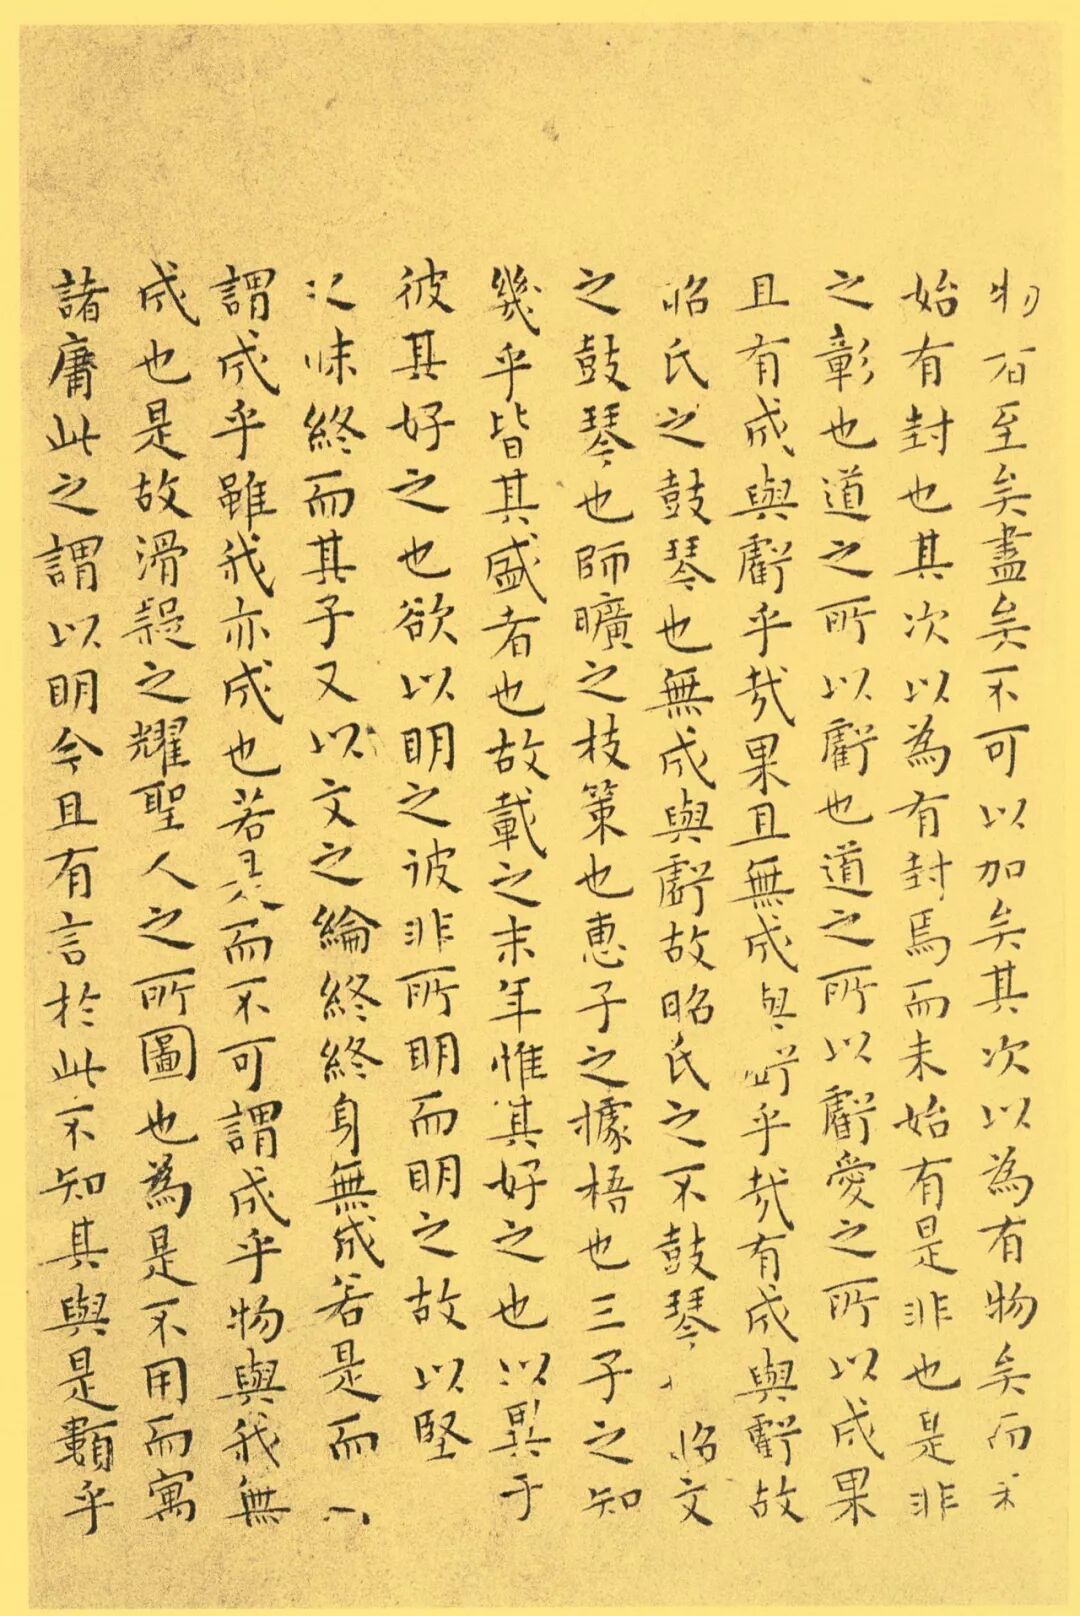 物者至矣盡矣不可以加矣其次以為有物矣而未
始有封也其次以為有封焉而未始有是非也是非
之彰也道之所以虧也道之所以虧愛之所以成果
且有成與虧乎哉果且無成與虧乎哉有成與虧故
昭氏之鼓琴也無成與虧故昭氏之不鼓琴昭文
之鼓琴也師曠之枝策也惠子之據梧也三子之知
幾乎皆其盛者也故載之末年惟其好之也以異于
彼其好之也欲以明之彼非所明而明之故以堅
昧終而其子又以文之綸終終身無成若是而
謂成乎雖我亦成也若是而不可謂成乎物與我無
成也是故滑疑之耀聖人之所圖也為是不用而寓
諸庸此之謂以明今且有言於此不知其與是類乎